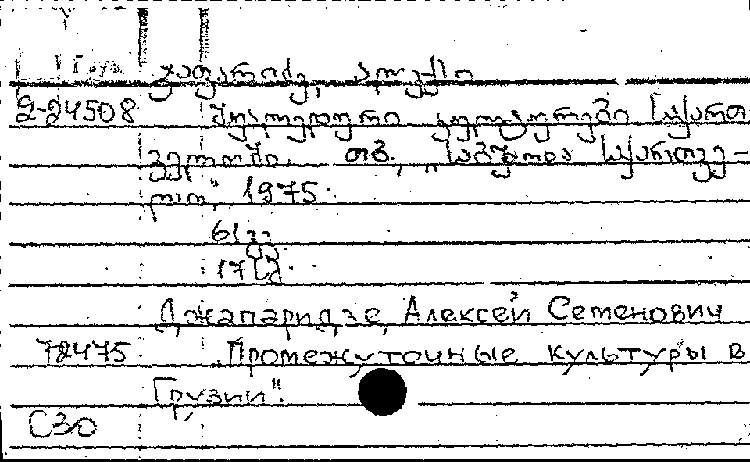 ჯაფარიძე, ალექსი
2-24508 შუალედური კულტურები საქართ
ველოში. თბ., „საბჭოთა საქართვე-
ლო", 1975.
61 გვ.
17 კ.
Джапаридзе, Алексей Семенович
72475 „Промежуточные культуры в
Грузии".
С30